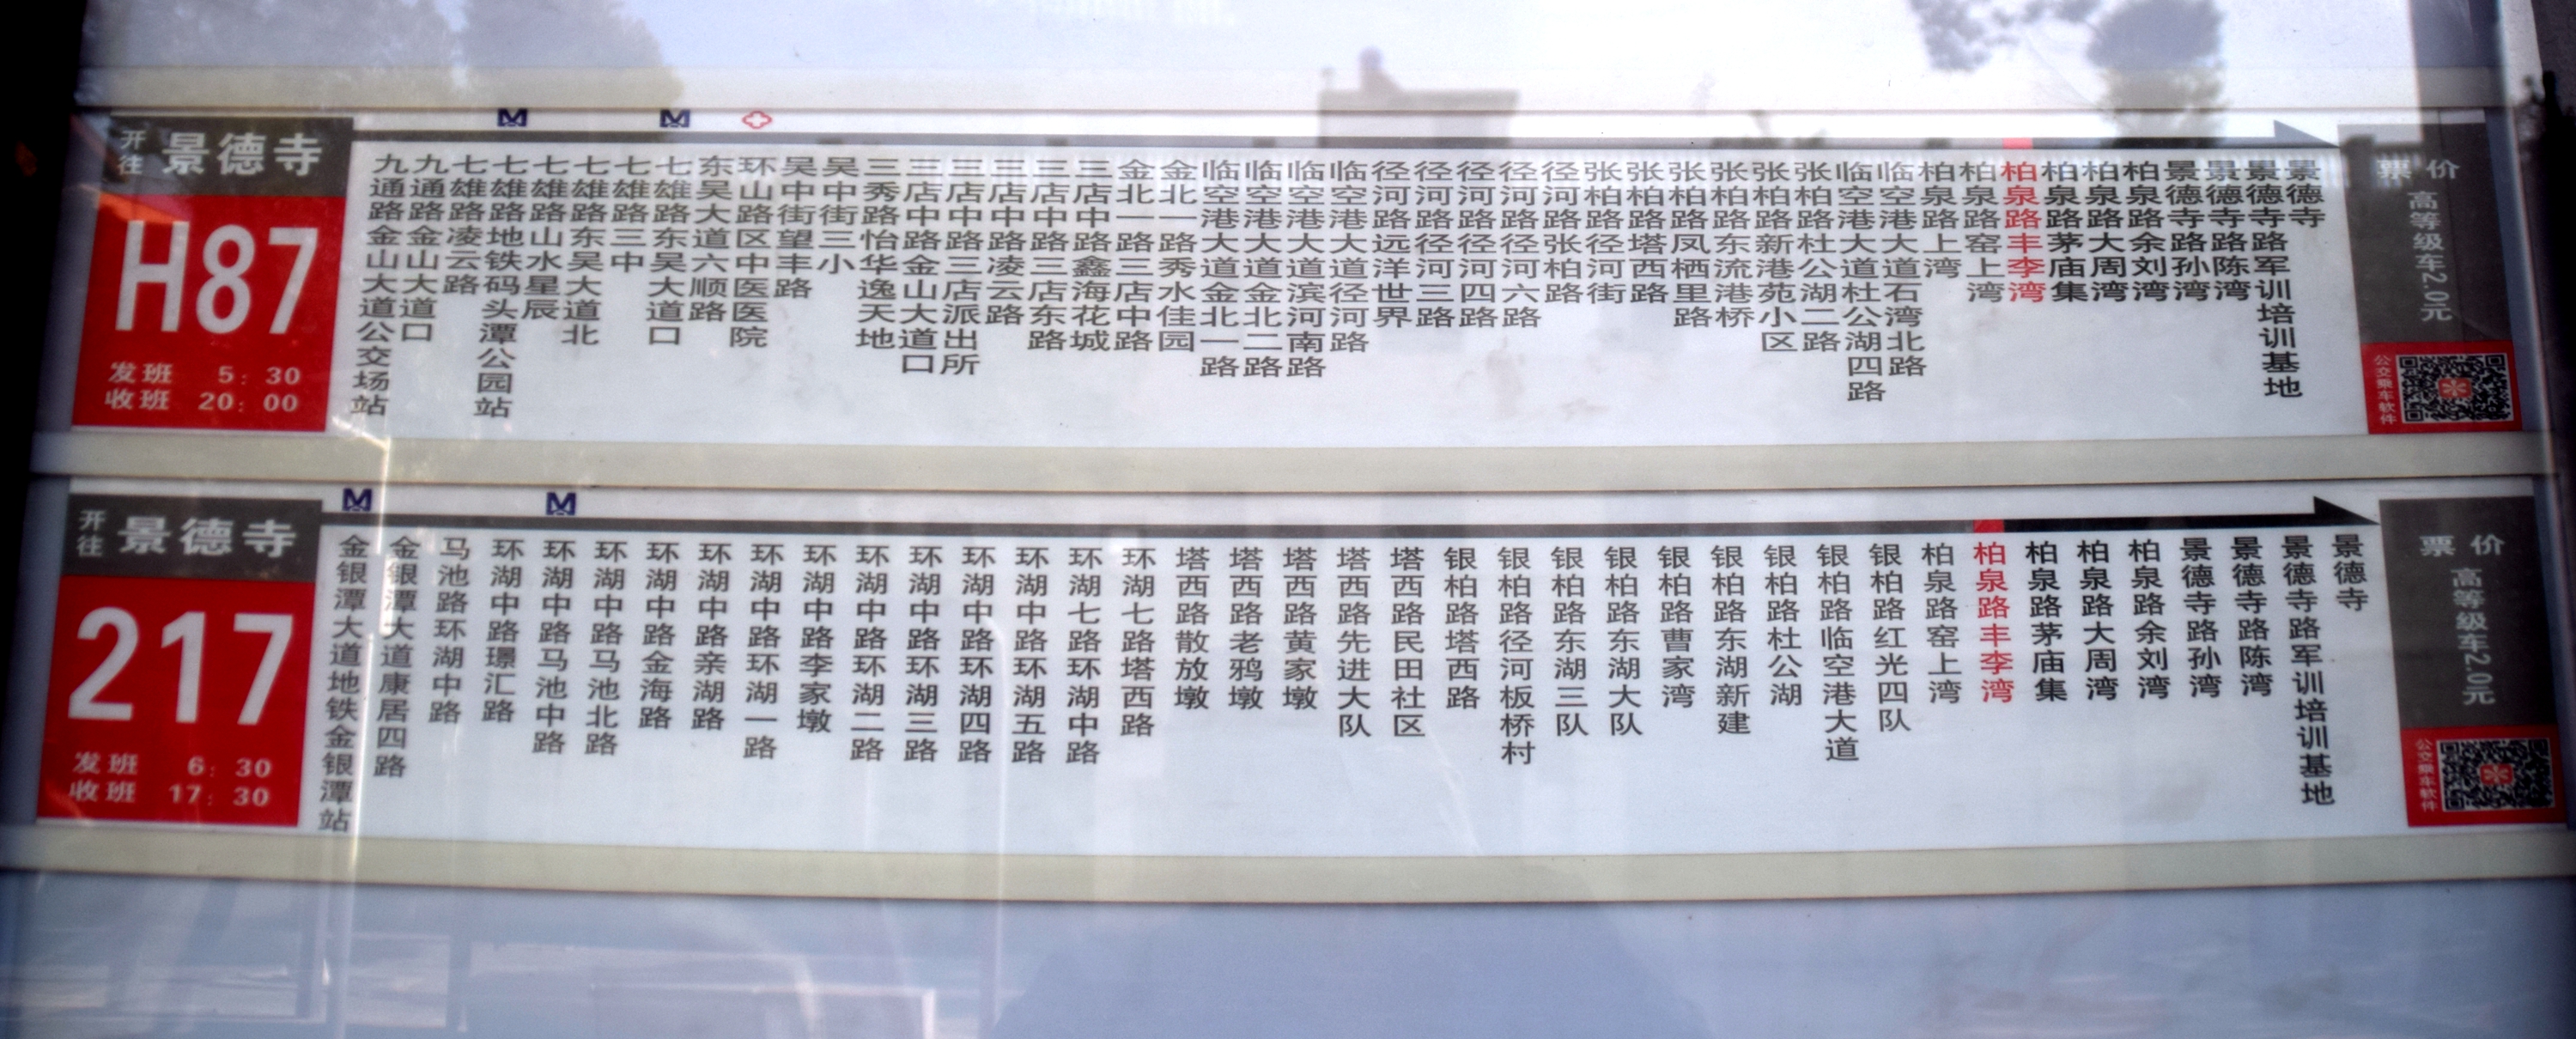 开往 景德寺
H87
发班 5:30
收班 20:00
九通路金山大道公交场站
九通路金山大道口
七雄路凌云路
七雄路地铁码头潭公园站
七雄路山水星辰
七雄路东吴大道北
七雄路三中
七雄路东吴大道口
东吴大道六顺路
环山路区中医医院
吴中街望丰路
吴中街三小
三秀路怡华逸天地
三店中路金山大道口
三店中路三店派出所
三店中路凌云路
三店中路三店东路
三店中路鑫海花城
金北一路三店中路
金北一路秀水佳园
临空港大道金北一路
临空港大道金北二路
临空港大道滨河南路
临空港大道径河路
径河路远洋世界
径河路径河三路
径河路径河四路
径河路径河六路
径河路张柏路
张柏路径河街
张柏路塔西路
张柏路凤栖里路
张柏路东流港桥
张柏路新港苑小区
张柏路杜公湖二路
临空港大道杜公湖四路
临空港大道石湾北路
柏泉路上湾
柏泉路窑上湾
柏泉路丰李湾
柏泉路茅庙集
柏泉路大周湾
柏泉路余刘湾
景德寺路孙湾
景德寺路陈湾
景德寺路军训培训基地
景德寺
票价
高等级车2.0元
公交乘车软件
开往 景德寺
217
发班 6:30
收班 17:30
金银潭大道地铁金银潭站
金银潭大道康居四路
马池路环湖中路
环湖中路璟汇路
环湖中路马池中路
环湖中路马池北路
环湖中路金海路
环湖中路亲湖路
环湖中路环湖一路
环湖中路李家墩
环湖中路环湖二路
环湖中路环湖三路
环湖中路环湖四路
环湖中路环湖五路
环湖七路环湖中路
环湖七路塔西路
塔西路散放墩
塔西路老鸦墩
塔西路黄家墩
塔西路先进大队
塔西路民田社区
银柏路塔西路
银柏路径河板桥村
银柏路东湖三队
银柏路东湖大队
银柏路曹家湾
银柏路东湖新建
银柏路杜公湖
银柏路临空港大道
银柏路红光四队
柏泉路窑上湾
柏泉路丰李湾
柏泉路茅庙集
柏泉路大周湾
柏泉路余刘湾
景德寺路孙湾
景德寺路陈湾
景德寺路军训培训基地
景德寺
票价
高等级车2.0元
公交乘车软件